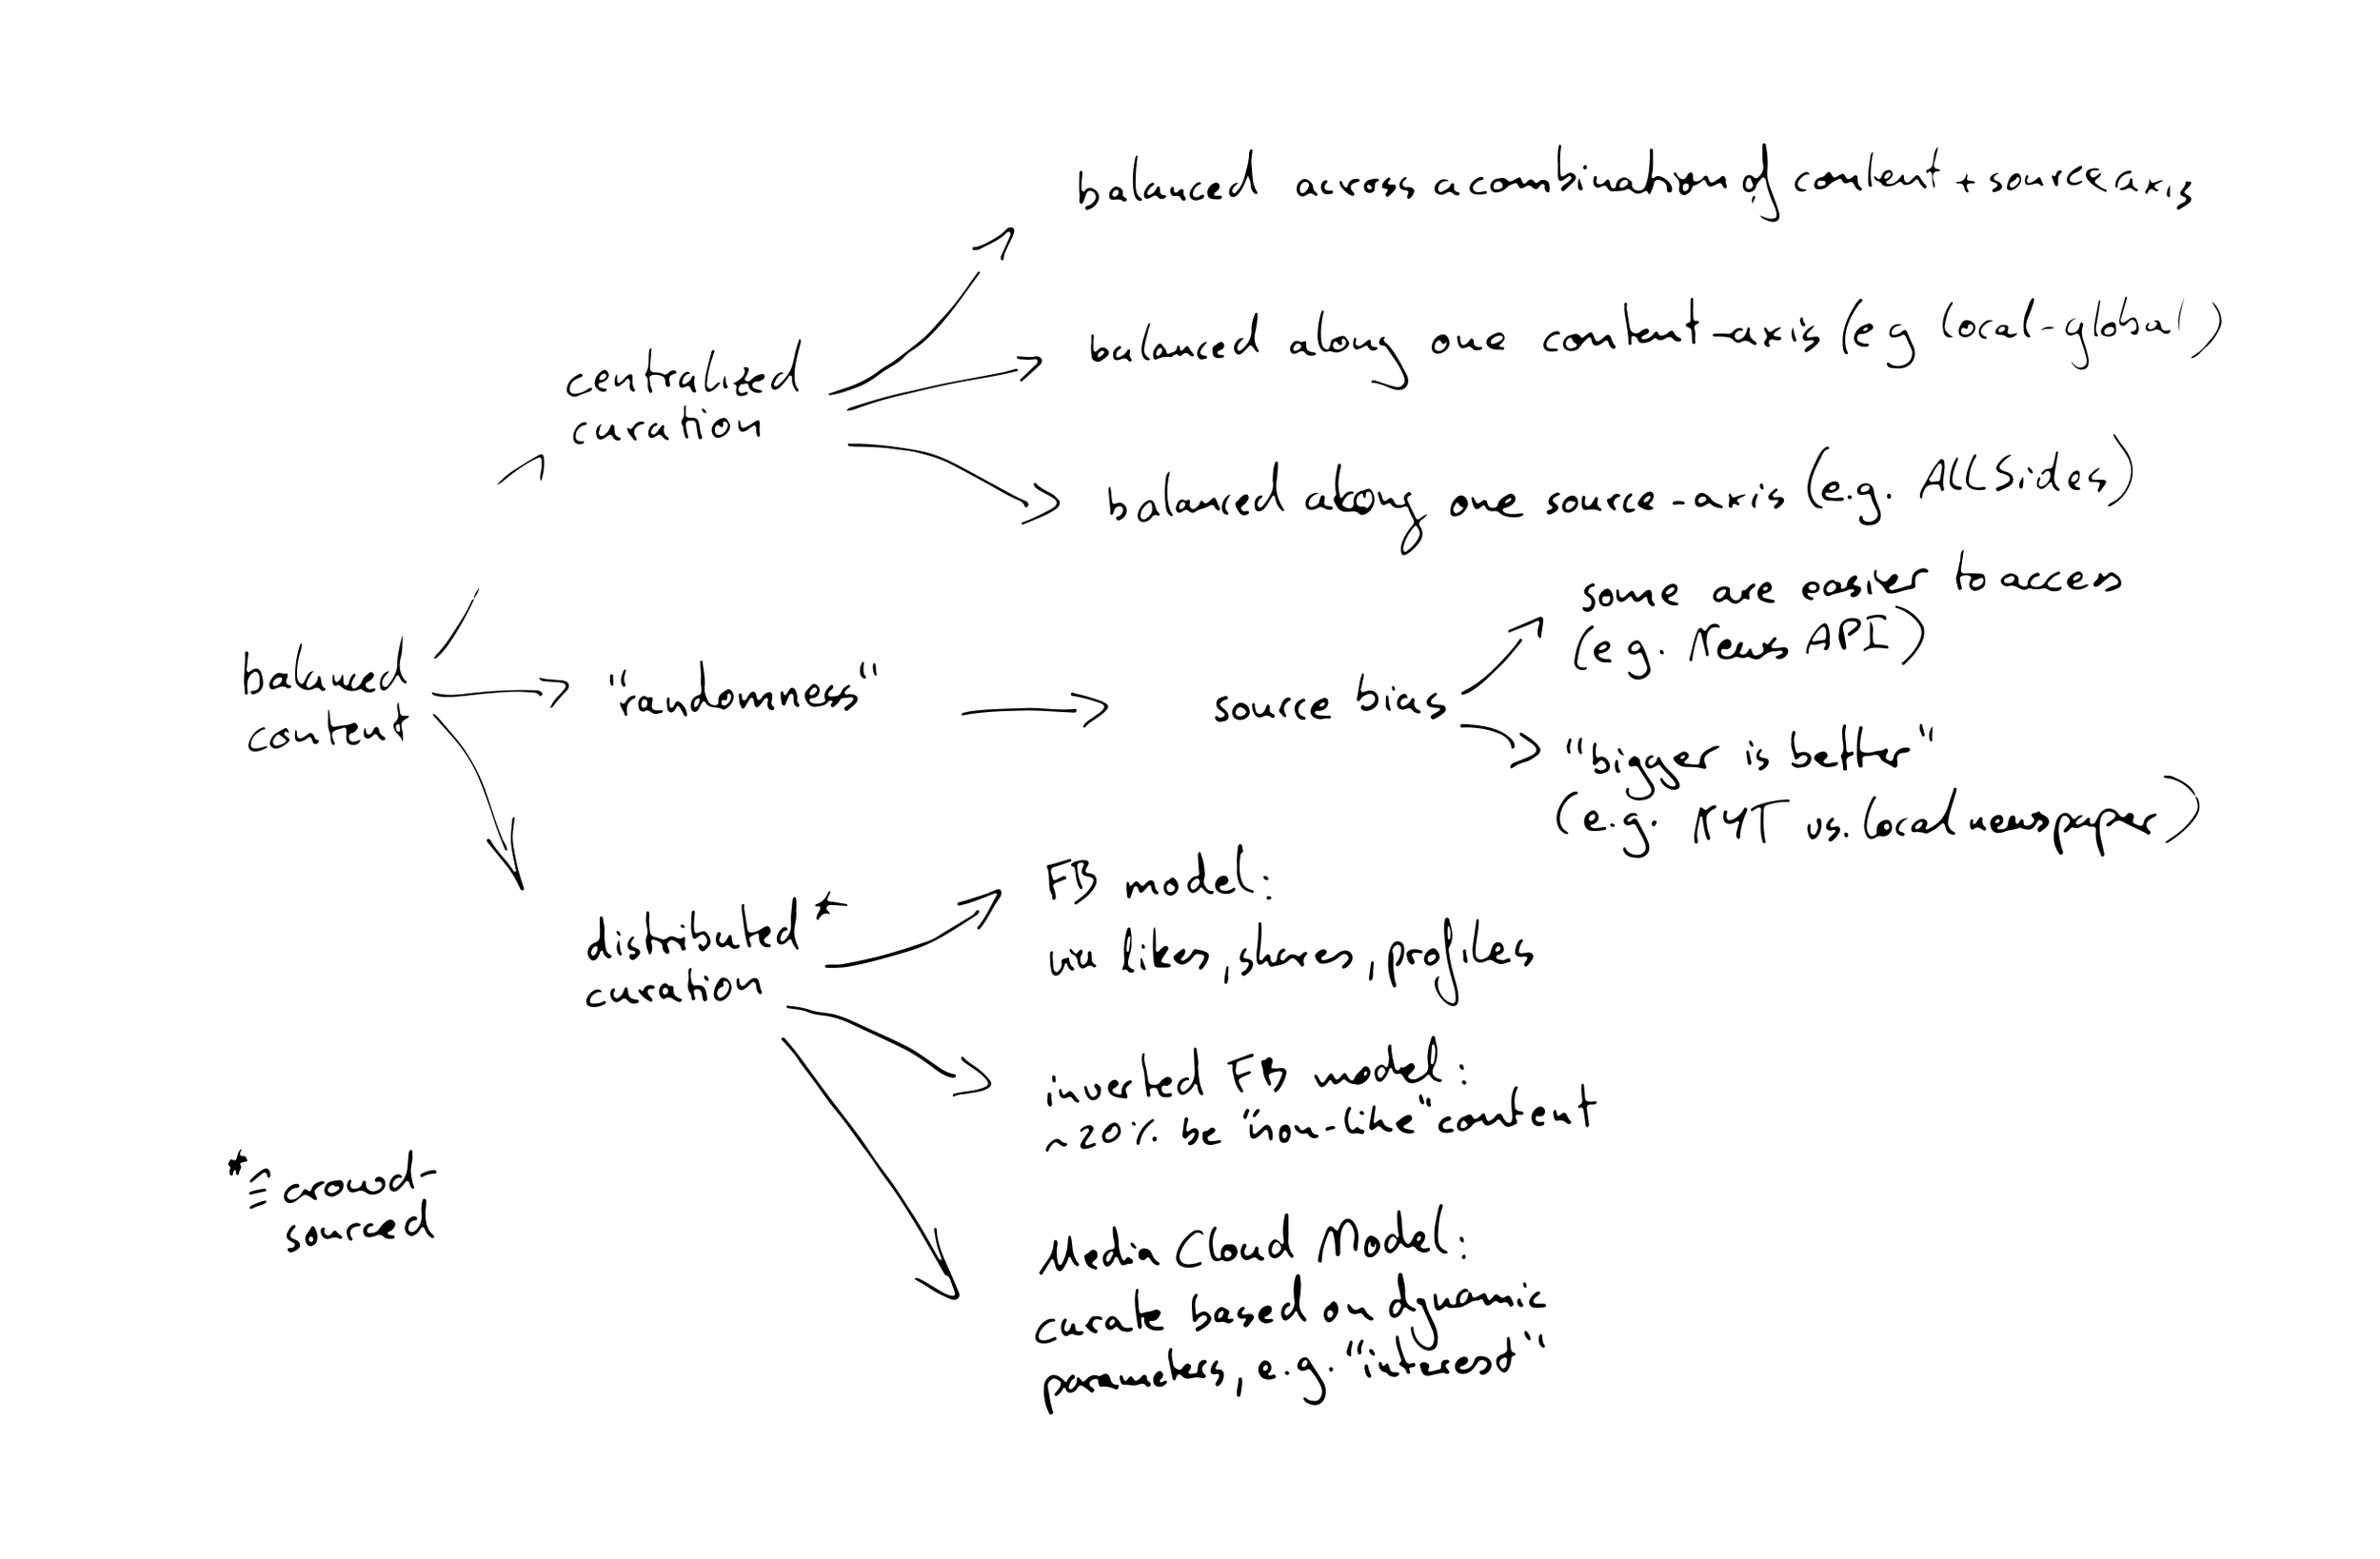 balanced across a combination of content + source axis
centralized
curation
balanced along one content-axis (eg local-global)
balanced along one source-axis (e.g. ALLSides)
balanced
content
"randomness"
source bias
some are easier to access
(eg. News API)
"bigger is better"
(e.g. NYT vs. local newspaper)
distributed*
curation
FB model:
likes, shares, profiles
inverted FB model:
~20% be "non-like" content
Media Cloud Model:
curate based on dynamic
parameters, e.g. "interest"
*≙ crowd-
sourced